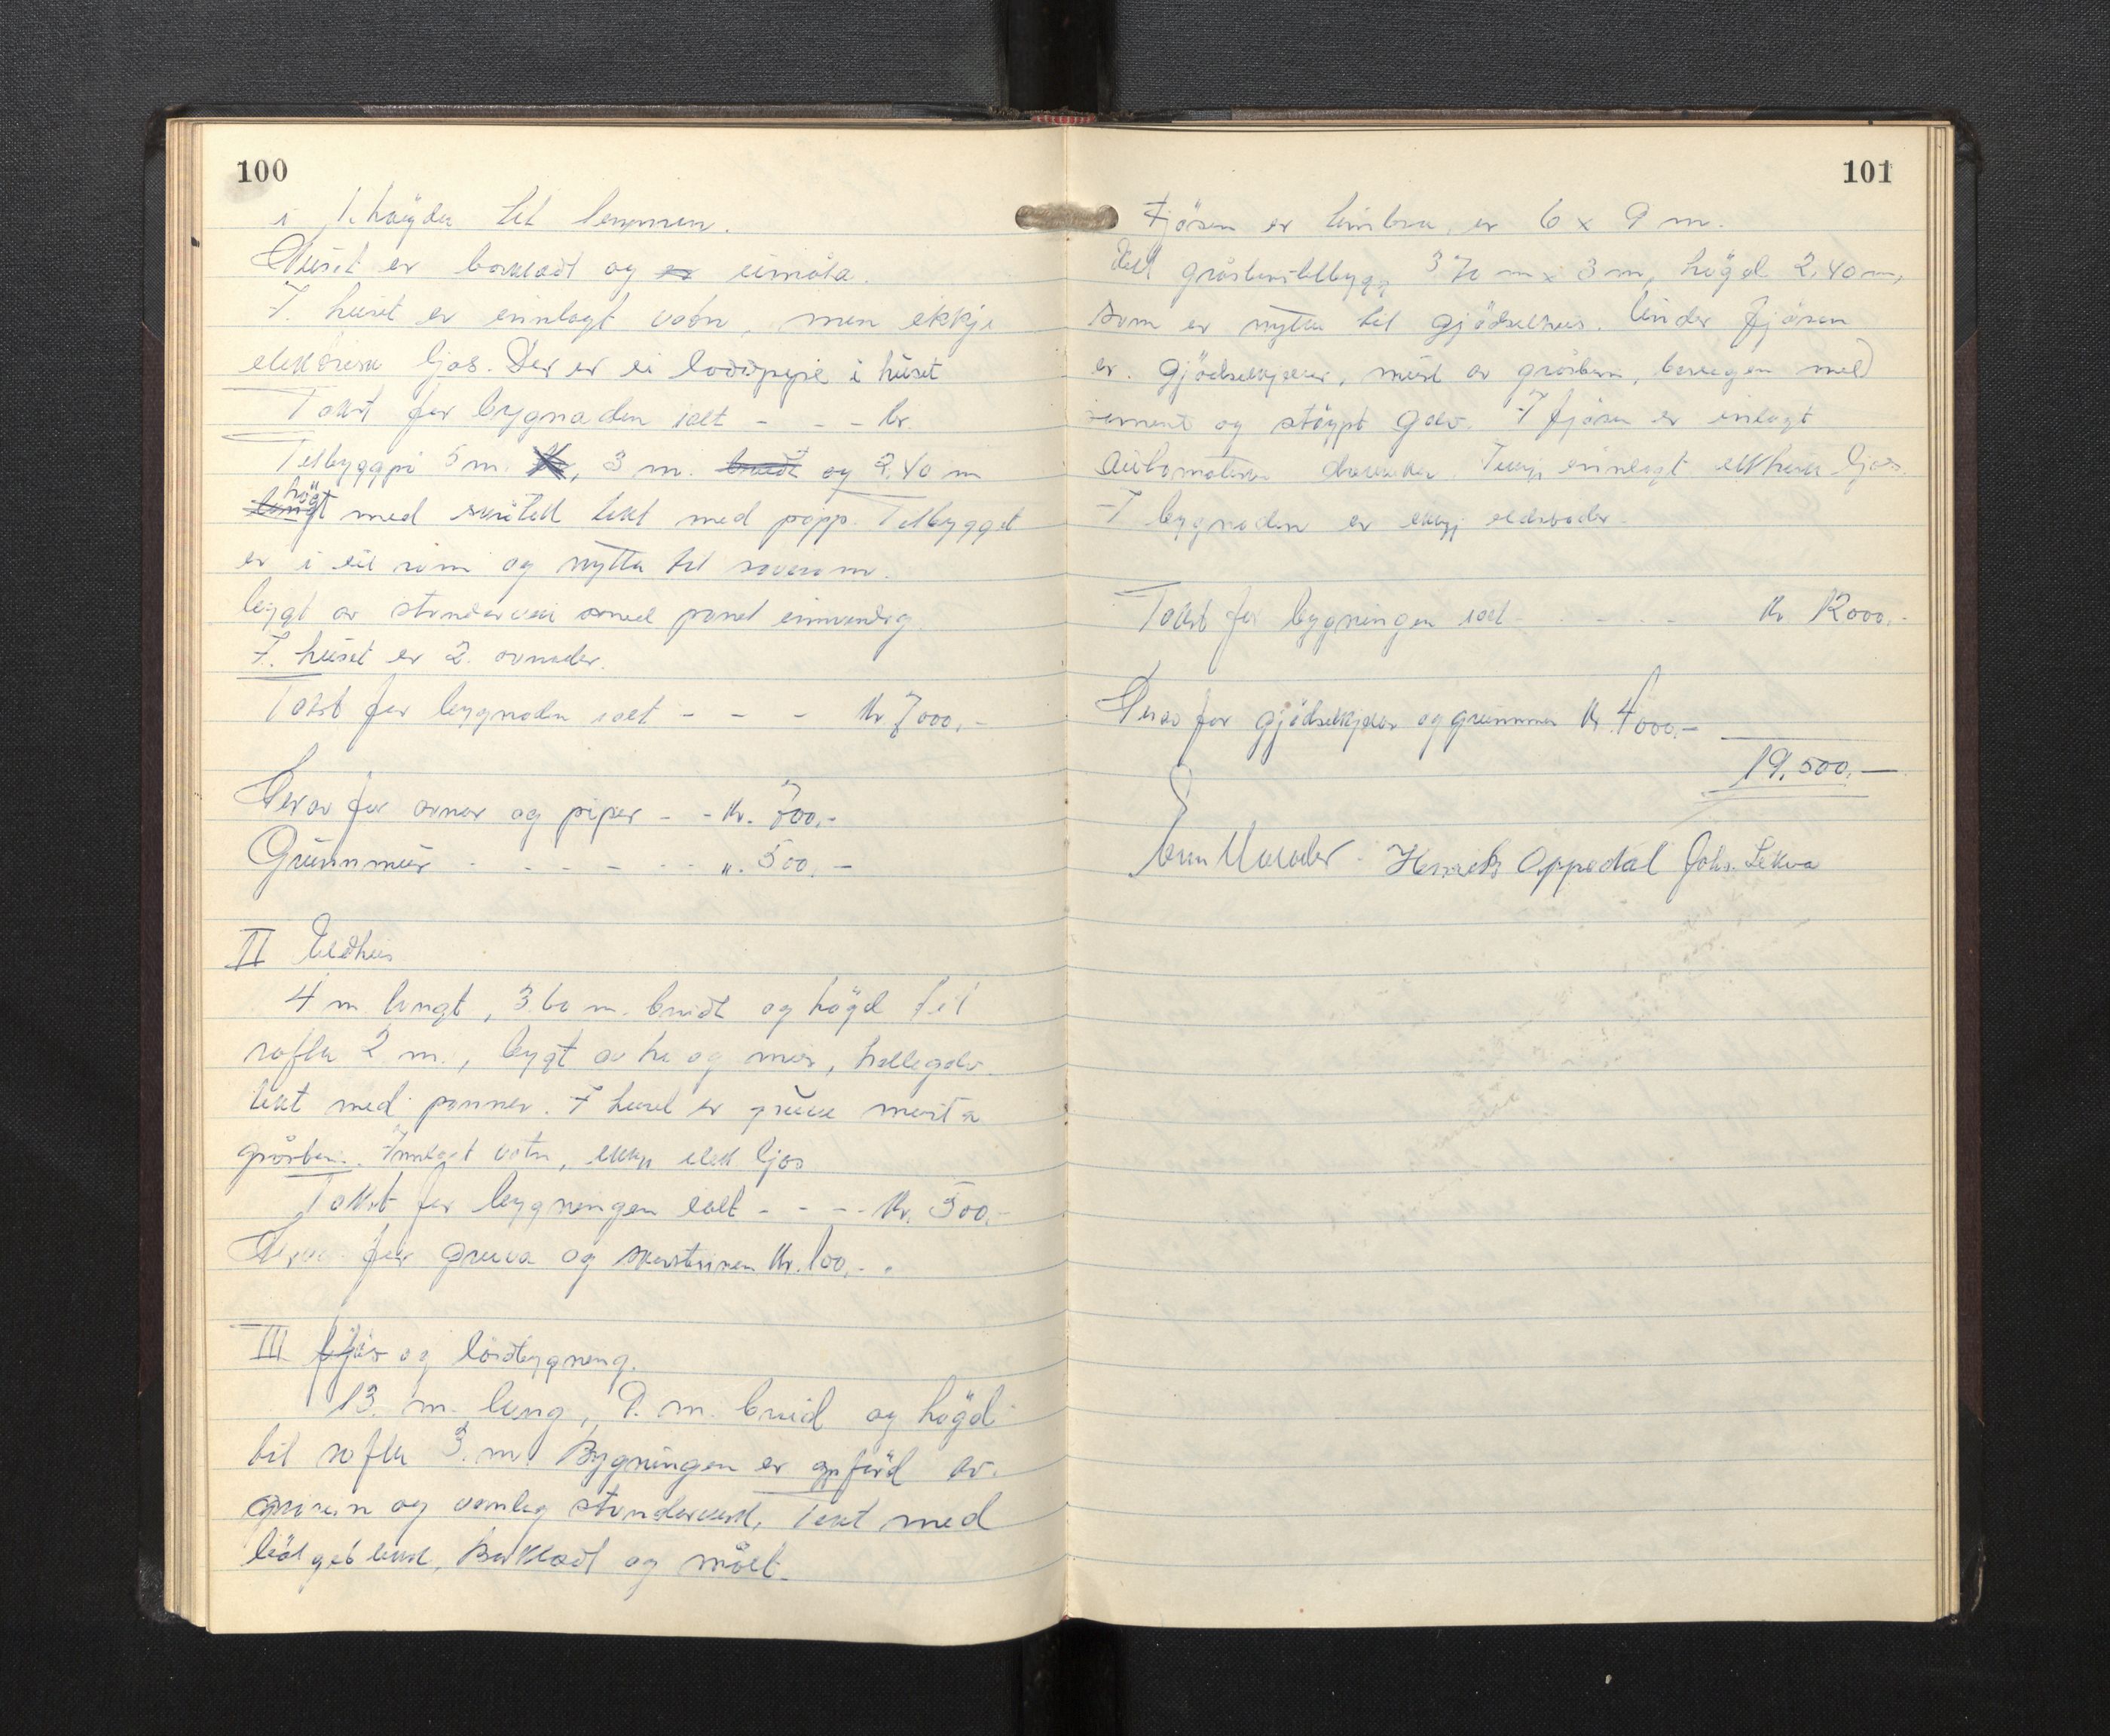 100
i 1. høgda til lemmen.
Huset er borklædt og er umåla.
I huset er innlagt vatn, men ikkje
elektrisk ljos. Der er ei loddpipe i huset
Takst for bygnaden ialt - - - kr.
Tilbyggpå 5 m. 3 m. breidt og 2,40 m
høgt med skråtak tekt med papp. Tilbygget
er i eit rom og nytta til soverom.
bygt av stenderverk med panel innvendig.
I. huset er 2. ovnader.
Takst for bygnaden ialt - - - kr. 7000,-
Herav for ovner og piper - - kr. 700,-
Grunnmur - - - - - - ". 500,-
II Eldhus
4 m. langt, 3.60 m. breidt og høgd til
rafta 2 m., bygt av tre og mur, hellegolv.
tekt med panner. I huset er gruve mura
gråstein. Innlagt vatn, ikkje elek ljos
Takst for bygningen ialt - - - kr. 500,-
Herav for gruva og skorsteinen kr. 100,-.
III Fjøs og løebygning.
13. m. lang, 9. m. breid og høgd
til rafta 3. m. Bygningen er oppførd av.
og vanleg stenderverk, Tekt med
Borklædt og målt.
101
Fjøsen er timbra, er 6 x 9 m.
gråsteinstilbygg 3 70 m x 3 m, høgd 2,40 m,
som er nytta til gjødselhus. Under fjøsen
er. gjødselkjellar, murt av gråstein, med
sement og støypt golv. I fjøsen er innlagt
Automatiske innlagt elektrisk ljos.
I bygnaden er ikkje eldstader.
Takst for bygningen ialt - - - - - kr 12000,-
Herav for gjødselkjellar og grunnmur kr. 4000,-
19.500,-
Henrik Oppedal Johs. Lekva